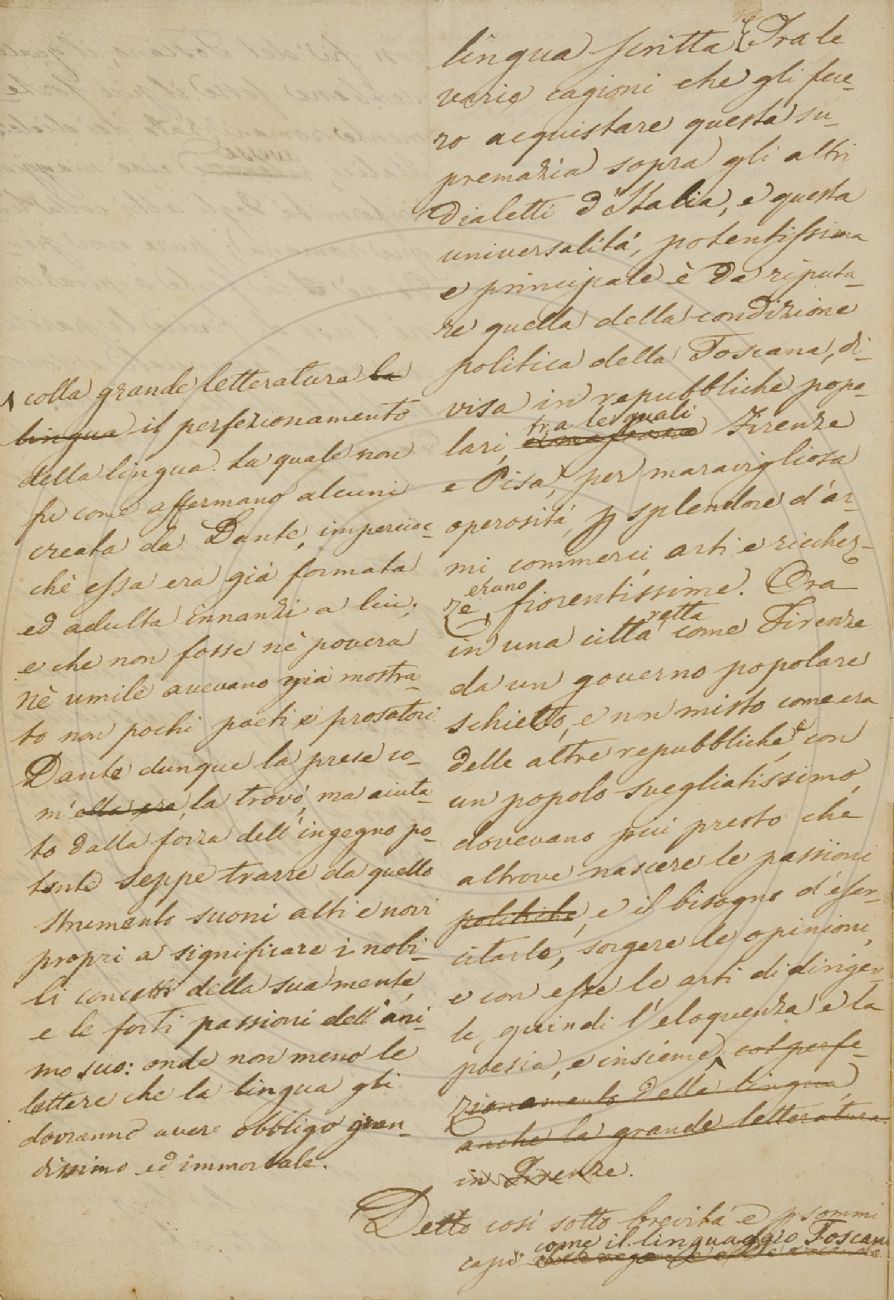 lingua scritta. Tra le
varie cagioni che gli fece-
ro acquistare questa su-
premazia sopra gli altri
dialetti d'Italia, e questa
universalità, potentissima
e principale è da riputa-
re quella della condizione
politica della Toscana, di-
visa in repubbliche popo-
lari, fra le quali Firenze
e Pisa, per maravigliosa
operosità, p splendore d'ar-
mi commerci, arti e ricchez-
ze erano fiorentissime. Ora
in una città retta come Firenze
da un governo popolare
schietto, e non misto come era
delle altre repubbliche, e con
un popolo svegliatissimo,
dovevano più presto che
altrove nascere le passioni
politiche, e il bisogno d'eser-
citarle, sorgere le opinioni,
e con esse le arti di diriger-
le, quindi l'eloquenza e la
poesia, e insieme, col perfe-
zionamento della lingua
anche la grande letteratura
in Firenze.
Detto così sotto brevità e p sommi
capi come il linguaggio Toscano
colla grande letteratura la
lingua il perfezionamento
della lingua. La quale non
fu come affermano alcuni
creata da Dante, impercioc-
chè essa era già formata
ed adulta innanzi a lui;
e che non fosse nè povera
nè umile avevano già mostra-
to non pochi poeti e prosatori.
Dante dunque la prese co-
m'ella era, la trovò, ma aiuta-
to dalla forza dell'ingegno po-
tente seppe trarre da quello
strumento suoni alti e novi
propri a significare i nobi-
li concetti della sua mente,
e le forti passioni dell'ani-
mo suo: onde non meno le
lettere che la lingua gli
dovranno avere obbligo gran-
dissimo ed immortale.